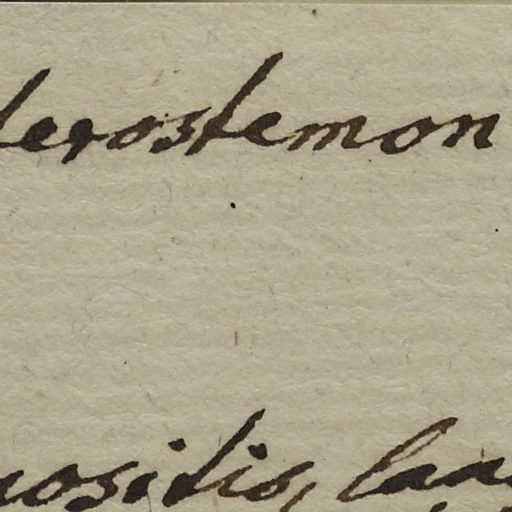 terostemon
ositis, lan